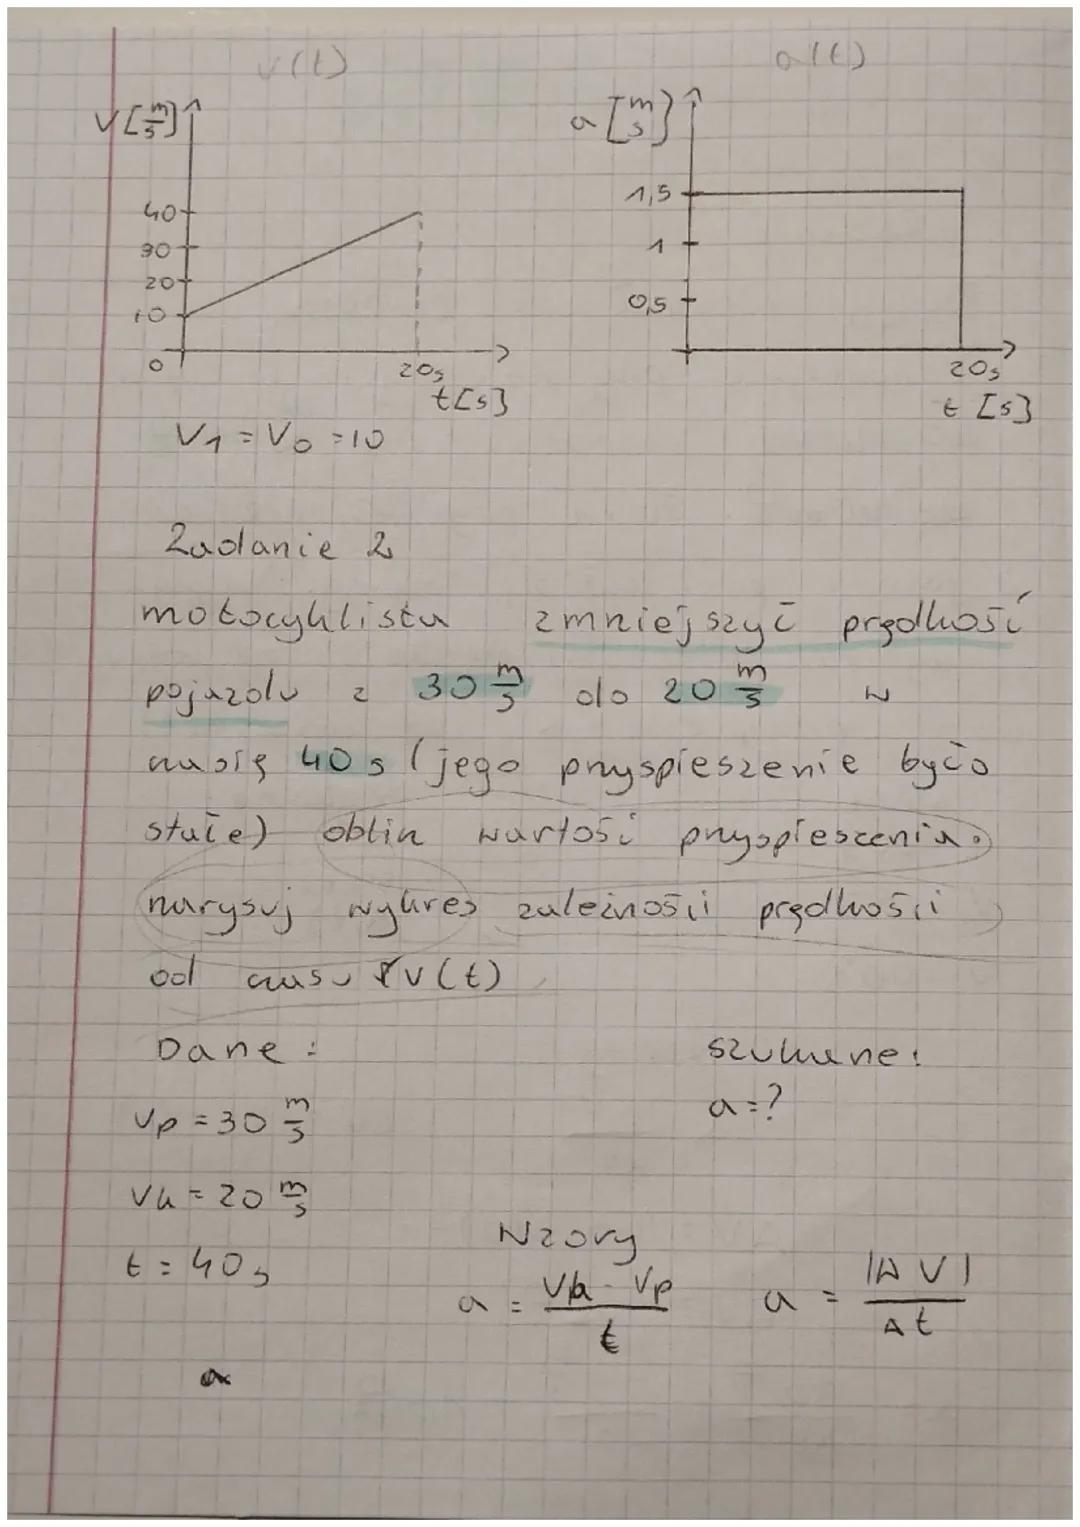 v(t)
a(t)
V [m/s]
40
30
20
10
0
20s
t[s]
a [m/s]
1,5
1
0,5
20s
t [s]
V1 = V0 = 10
Zadanie 2
motocyklista zmniejszył prędkość
pojazdu z 30 m/s do 20 m/s w
czasię 40 s (jego przyspieszenie było
stałe) oblicz wartość przyspieszenia.
narysuj wykres zależności prędkości
od czasu v(t)
Dane:
Szukane:
Vp = 30 m/s
a=?
Vk = 20 m/s
t = 40s
Wzory
a = Vk - Vp / t
a = |Δ V| / Δt
a